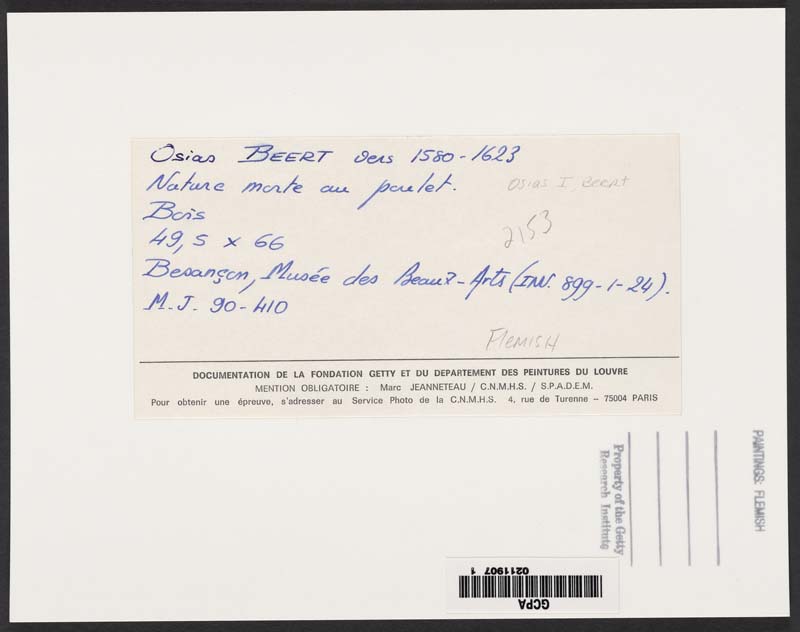 Osias BEERT vers 1580-1623
Nature morte au poulet.
Osias I Beert
Bois
2153
49,5 x 66
Besançon, Musée des Beaux-Arts (INV. 899-1-24).
M.J. 90-410
Flemish
DOCUMENTATION DE LA FONDATION GETTY ET DU DEPARTEMENT DES PEINTURES DU LOUVRE
MENTION OBLIGATOIRE : Marc JEANNETEAU / C.N.M.H.S. / S.P.A.D.E.M.
Pour obtenir une épreuve, s'adresser au Service Photo de la C.N.M.H.S. 4, rue de Turenne – 75004 PARIS
Property of the Getty
Research Institute
PAINTINGS: FLEMISH
GCPA
0211907 1